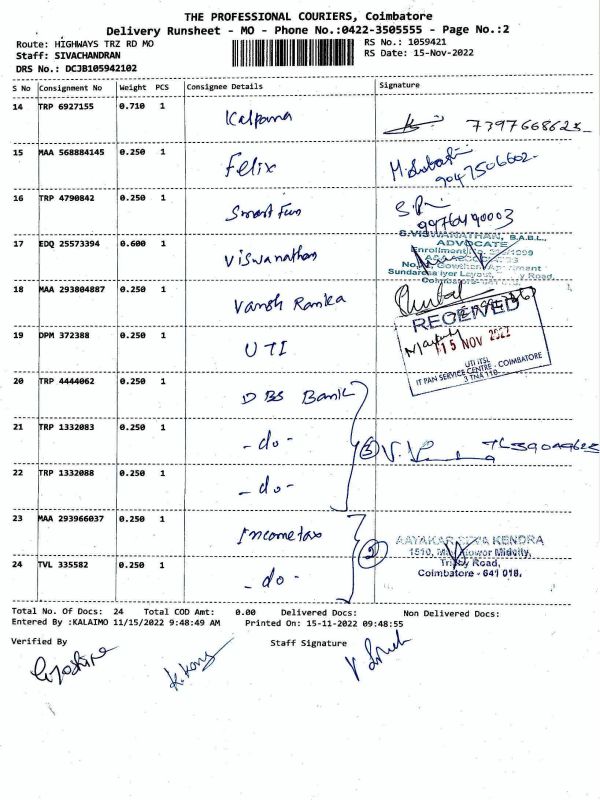 THE PROFESSIONAL COURIERS, Coimbatore
Delivery Runsheet - MO - Phone No.:0422-3505555 - Page No.:2
Route: HIGHWAYS TRZ RD MO RS No.: 1059421
Staff: SIVACHANDRAN RS Date: 15-Nov-2022
DRS No.: DCJB105942102
S No Consignment No Weight PCS Consignee Details Signature
14 TRP 6927155 0.710 1 Kalpana
15 MAA 568884145 0.250 1 Felix 9047506602
16 TRP 4790842 0.250 1 Smart Fun 9976490003
17 EDQ 25573394 0.600 1 Viswanathan
S.VISWANATHAN, B.A.B.L.,
ADVOCATE
Sundaresa Iyer Layout, Road,
18 MAA 293804887 0.250 1 Vansh Ranka
19 DPM 372388 0.250 1 UTI
RECEIVED
15 NOV 2022
UTI ITSL
IT PAN SERVICE CENTRE - COIMBATORE
3 TNA 110
20 TRP 4444062 0.250 1 DBS Bank
21 TRP 1332083 0.250 1 -do- 3
22 TRP 1332088 0.250 1 -do-
23 MAA 293966037 0.250 1 Income tax 2
AAYAKAR SEVA KENDRA
1510, Mayflower Midcity,
Trichy Road,
Coimbatore - 641 018.
24 TVL 335582 0.250 1 -do-
Total No. Of Docs: 24 Total COD Amt: 0.00 Delivered Docs: Non Delivered Docs:
Entered By :KALAIMO 11/15/2022 9:48:49 AM Printed On: 15-11-2022 09:48:55
Verified By Staff Signature